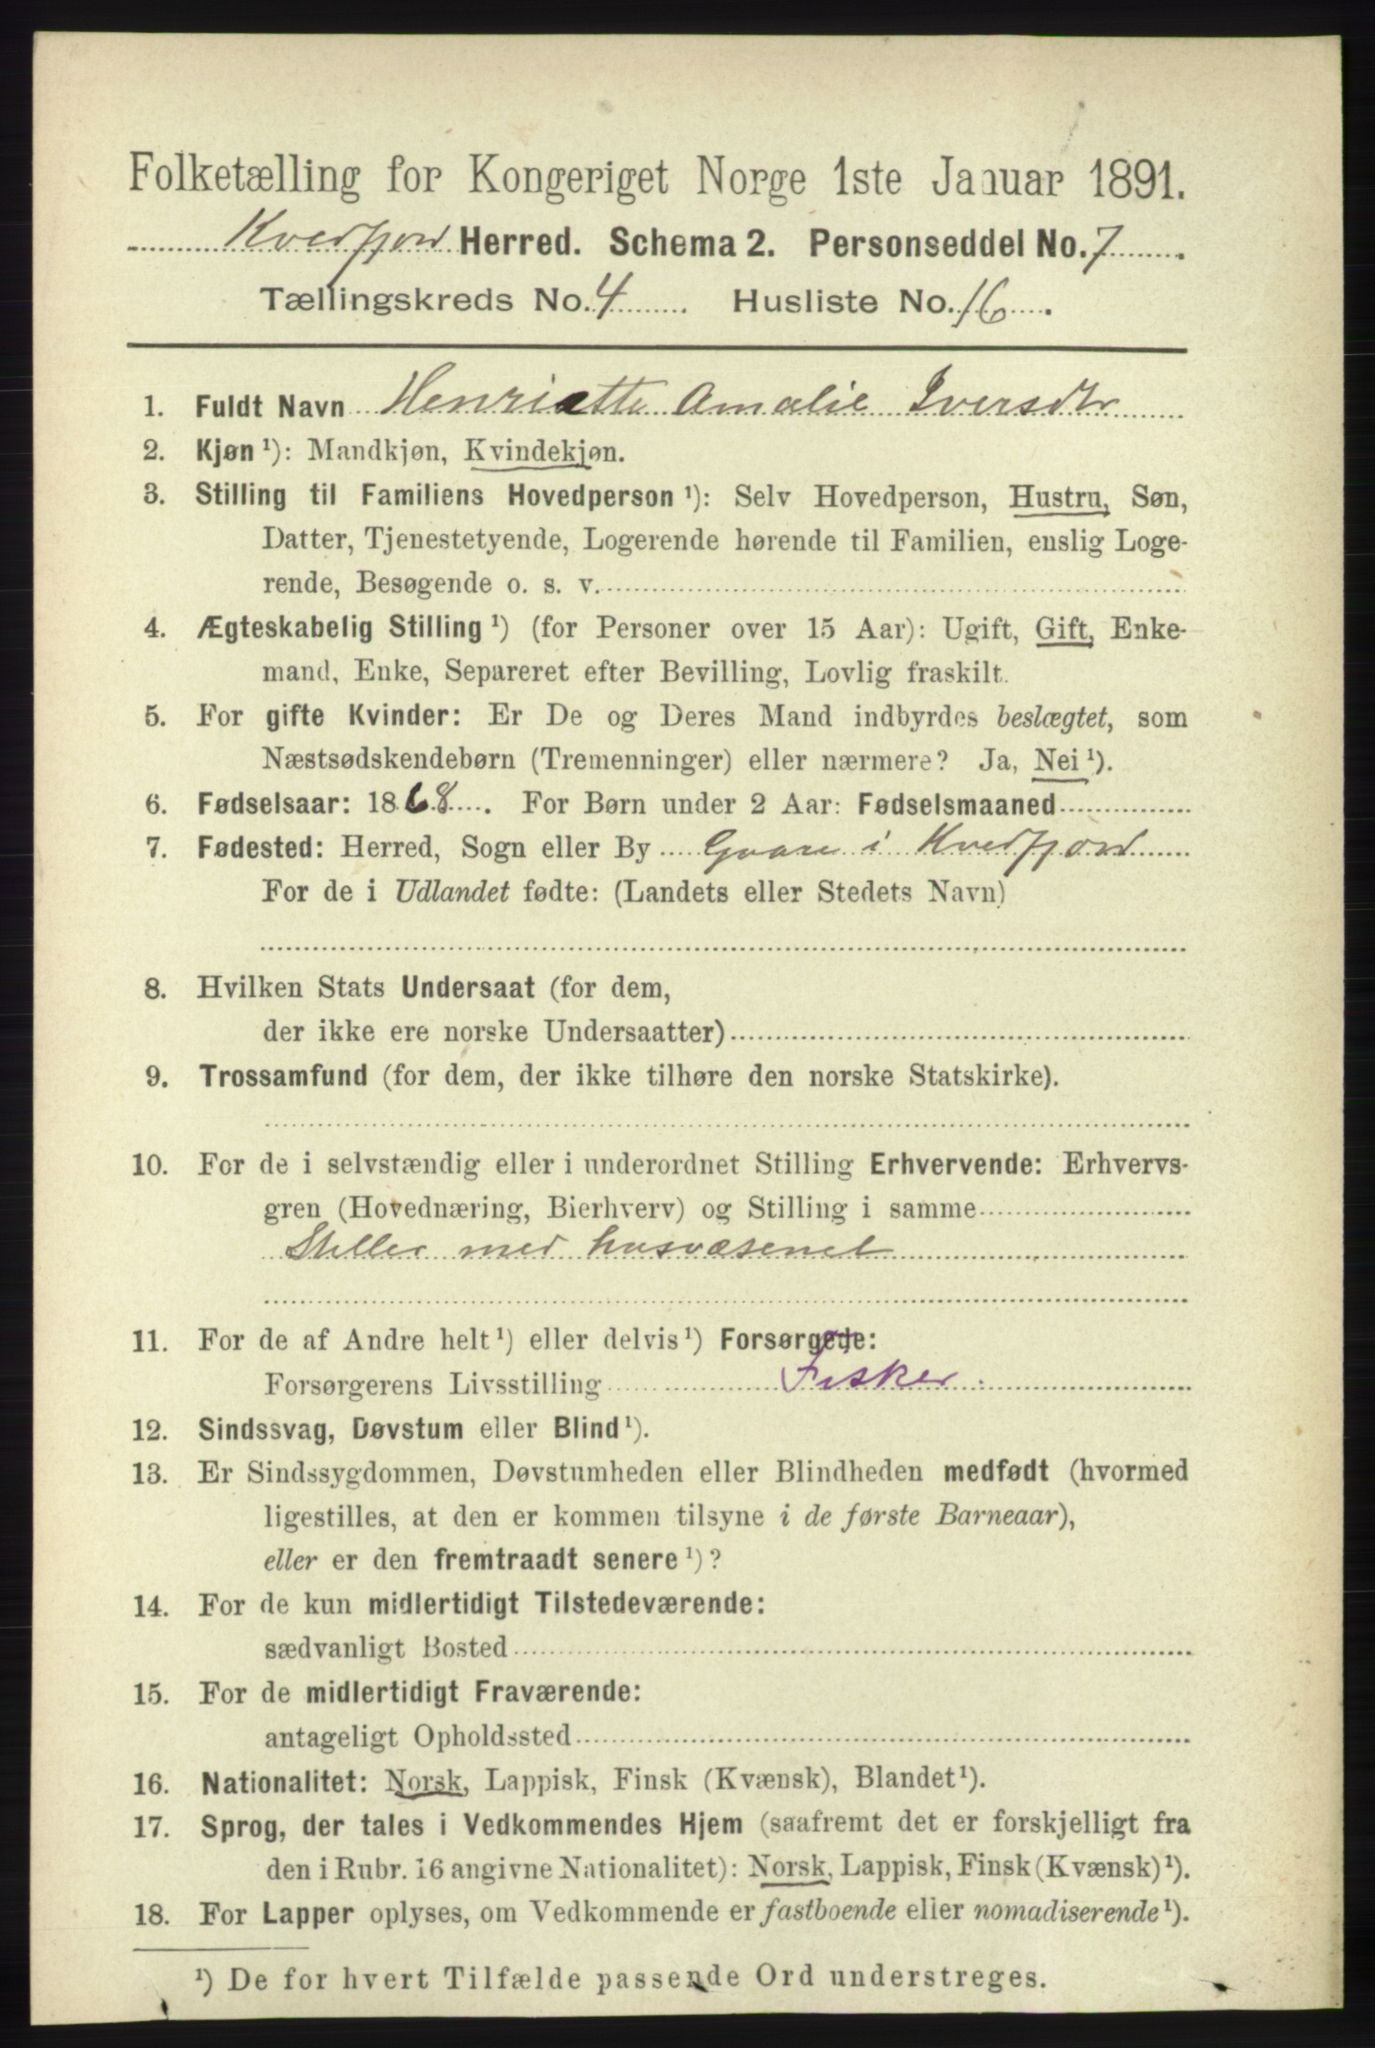 Folketælling for Kongeriget Norge 1ste Januar 1891.
Kvedfjord Herred. Schema 2. Personseddel No. 7
Tællingskreds No. 4 Husliste No. 16.
1. Fuldt Navn Henriette Amalie Iversdtr
2. Kjøn ¹): Mandkjøn, Kvindekjøn.
3. Stilling til Familiens Hovedperson ¹): Selv Hovedperson, Hustru, Søn,
Datter, Tjenestetyende, Logerende hørende til Familien, enslig Loge-
rende, Besøgende o. s. v.
4. Ægteskabelig Stilling ¹) (for Personer over 15 Aar): Ugift, Gift, Enke-
mand, Enke, Separeret efter Bevilling, Lovlig fraskilt.
5. For gifte Kvinder: Er De og Deres Mand indbyrdes beslægtet, som
Næstsødskendebørn (Tremenninger) eller nærmere? Ja, Nei ¹).
6. Fødselsaar: 1868. For Børn under 2 Aar: Fødselsmaaned
7. Fødested: Herred, Sogn eller By i Kvedfjord
For de i Udlandet fødte: (Landets eller Stedets Navn)
8. Hvilken Stats Undersaat (for dem,
der ikke ere norske Undersaatter)
9. Trossamfund (for dem, der ikke tilhøre den norske Statskirke).
10. For de i selvstændig eller i underordnet Stilling Erhvervende: Erhvervs-
gren (Hovednæring, Bierhverv) og Stilling i samme
Steller med husvæsenet
11. For de af Andre helt ¹) eller delvis ¹) Forsørgede:
Forsørgerens Livsstilling Fisker.
12. Sindssvag, Døvstum eller Blind ¹).
13. Er Sindssygdommen, Døvstumheden eller Blindheden medfødt (hvormed
ligestilles, at den er kommen tilsyne i de første Barneaar),
eller er den fremtraadt senere ¹)?
14. For de kun midlertidigt Tilstedeværende:
sædvanligt Bosted
15. For de midlertidigt Fraværende:
antageligt Opholdssted
16. Nationalitet: Norsk, Lappisk, Finsk (Kvænsk), Blandet ¹).
17. Sprog, der tales i Vedkommendes Hjem (saafremt det er forskjelligt fra
den i Rubr. 16 angivne Nationalitet): Norsk, Lappisk, Finsk (Kvænsk) ¹).
18. For Lapper oplyses, om Vedkommende er fastboende eller nomadiserende ¹).
¹) De for hvert Tilfælde passende Ord understreges.